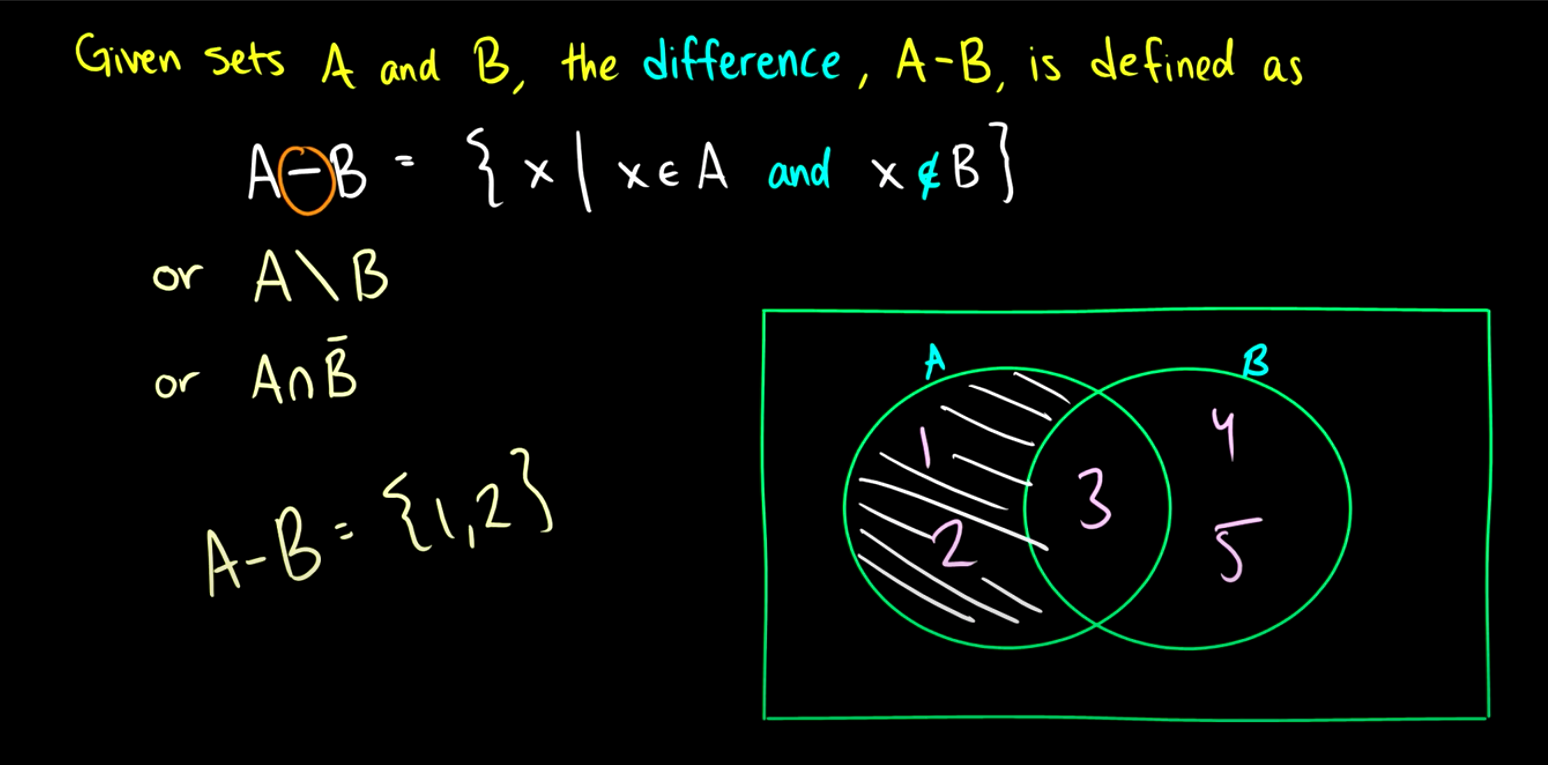 Given sets A and B, the difference, A-B, is defined as
A-B = {x | x ∈ A and x ∉ B}
or A\B
or A∩B̄
A-B = {1,2}
A B
1 4
3
2 5